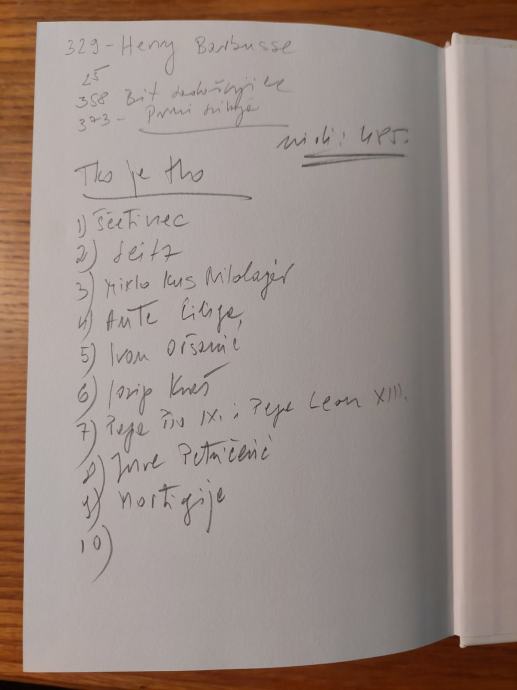 329 - Henry Barbusse
25
358 Bit
373 - Prvni
i 485.
Tko je tko
1) Šćetinec
2) Seitz
3) Mirko Kus Nikolajev
4) Ante Ciliga
5) Ivan Oršanić
6) Josip Kraš
7) Papa Pio IX. i Papa Leon XIII.
8) Jure Petričević
9)
10)